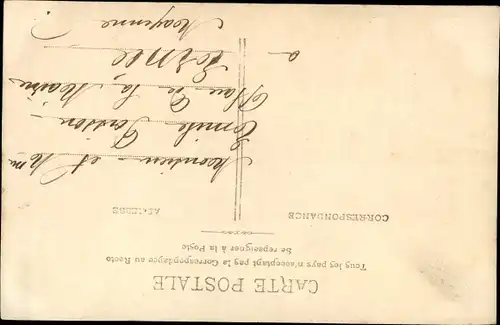 CARTE POSTALE
Tous les pays n'acceptent pas la Correspondance au Recto
Se renseigner à la Poste
CORRESPONDANCE
ADRESSE
Monsieur et Mme
Emile
Place de la Mairie
à
Mayenne